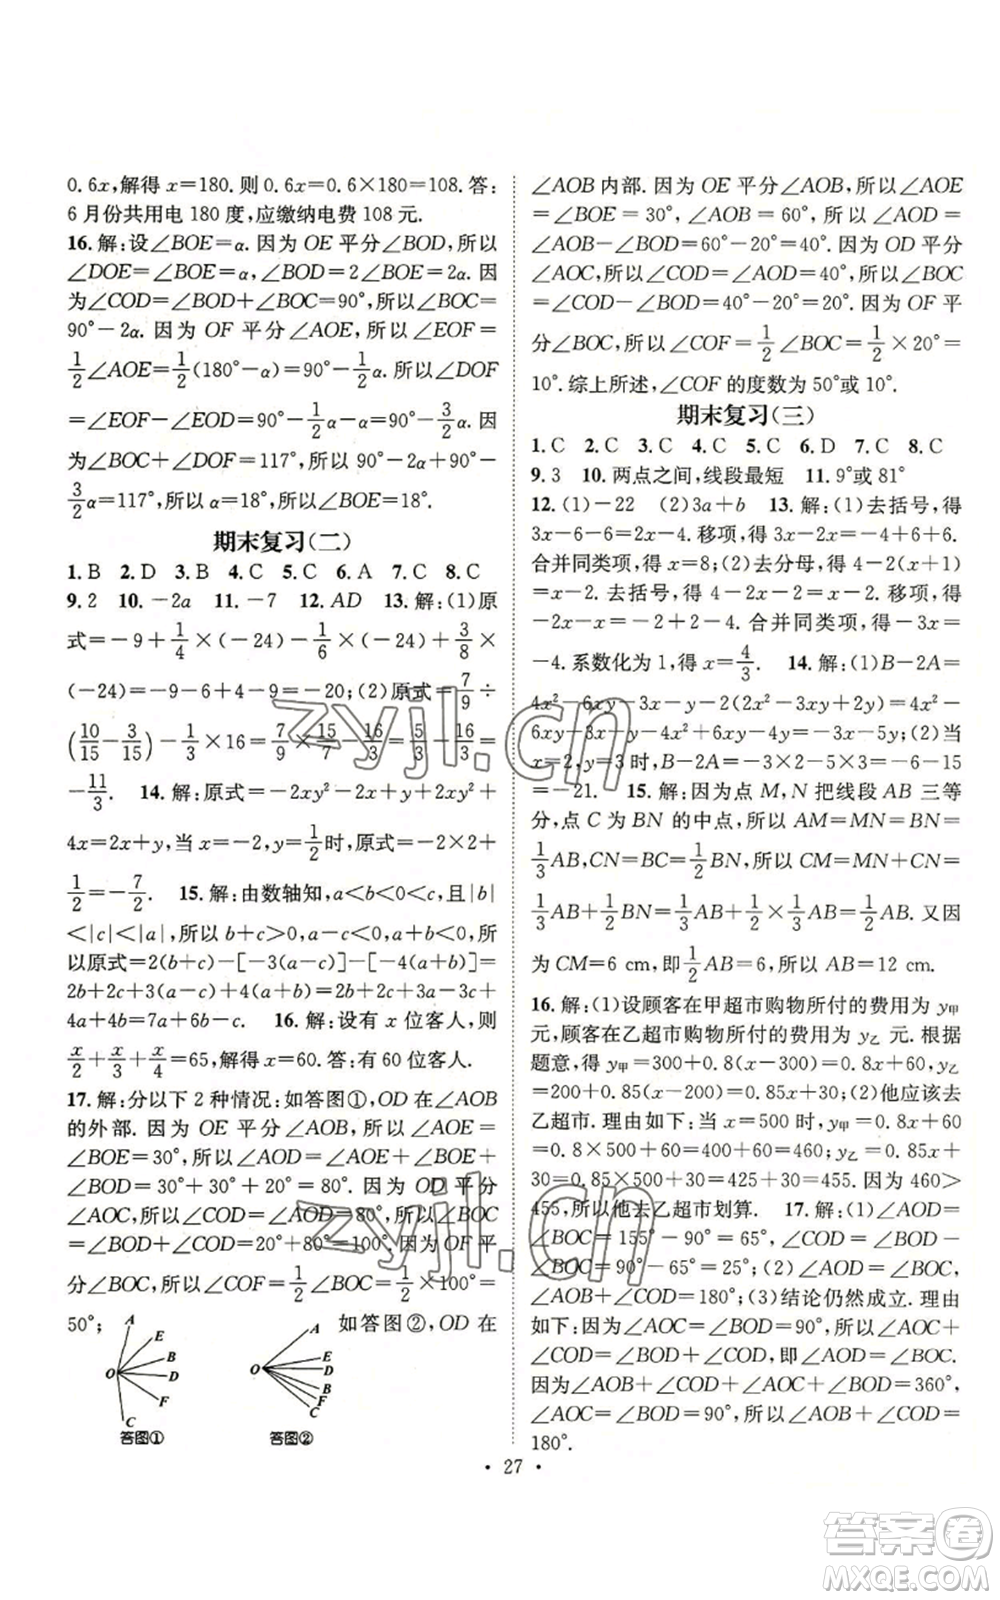 0.6x,解得 x=180.则 0.6x=0.6×180=108.答:
6月份共用电 180 度,应缴纳电费 108 元.
16.解:设∠BOE=α.因为 OE 平分∠BOD,所以
∠DOE=∠BOE=α,∠BOD=2∠BOE=2α.因
为∠COD=∠BOD+∠BOC=90°,所以∠BOC=
90°-2α.因为 OF 平分∠AOE,所以∠EOF=
1/2∠AOE=1/2(180°-α)=90°-1/2α,所以∠DOF
=∠EOF-∠EOD=90°-1/2α-α=90°-3/2α,所
以∠BOC+∠DOF=117°,所以 90°-2α+90°-
3/2α=117°,所以 α=18°,所以∠BOE=18°.
期末复习(二)
1.B 2.D 3.B 4.C 5.C 6.A 7.C 8.C
9.2 10.-2a 11.-7 12.AD 13.解:(1)原
式=-9+1/4×(-24)-1/6×(-24)+3/8×
(-24)=-9-6+4-9=-20;(2)原式=7/9÷
(10/15-3/15)-1/3×16=7/9×15/7-16/3=5/3-16/3=
-11/3. 14.解:原式=-2xy²-2x+y+2xy²+
4x=2x+y,当 x=-2,y=1/2时,原式=-2×2+
1/2=-7/2. 15.解:由数轴知,a<b<0<c,且|b|
<|c|<|a|,所以 b+c>0,a-c<0,a+b<0,所
以原式=2(b+c)-[-3(a-c)]-[-4(a+b)]=
2b+2c+3(a-c)+4(a+b)=2b+2c+3a-3c+
4a+4b=7a+6b-c. 16.解:设有 x 位客人,则
x/2+x/3+x/4=65,解得 x=60.答:有 60 位客人.
17.解:分以下 2 种情况:如答图①,OD 在∠AOB
的外部.因为 OE 平分∠AOB,所以∠AOE=
∠BOE=30°,所以∠AOD=∠AOE+∠BOE+
∠BOD=30°+30°+20°=80°.因为 OD 平分
∠AOC,所以∠COD=∠AOD=80°,所以∠BOC=
∠BOD+∠COD=20°+80°=100°.因为 OF 平
分∠BOC,所以∠COF=1/2∠BOC=1/2×100°=
50°; 如答图②,OD 在
A
E
B
O
D
F
C
答图①
A
E
O
D
B
F
C
答图②
∠AOB 内部.因为 OE 平分∠AOB,所以∠AOE=
∠BOE=30°,∠AOB=60°,所以∠AOD=
∠AOB-∠BOD=60°-20°=40°.因为 OD 平分
∠AOC,所以∠COD=∠AOD=40°,所以∠BOC=
∠COD-∠BOD=40°-20°=20°.因为 OF 平
分∠BOC,所以∠COF=1/2∠BOC=1/2×20°=
10°.综上所述,∠COF 的度数为 50°或 10°.
期末复习(三)
1.C 2.C 3.C 4.C 5.C 6.D 7.C 8.C
9.3 10.两点之间,线段最短 11.9°或 81°
12.(1)-22 (2)3a+b 13.解:(1)去括号,得
3x-6-6=2x-4.移项,得 3x-2x=-4+6+6.
合并同类项,得 x=8;(2)去分母,得 4-2(x+1)
=x-2.去括号,得 4-2x-2=x-2.移项,得
-2x-x=-2+2-4.合并同类项,得-3x=
-4.系数化为 1,得 x=4/3. 14.解:(1)B-2A=
4x²-6xy-3x-y-2(2x²-3x+2y)=4x²-
6xy-3x-y-4x²+6x-4y=-6xy+3x-5y;(2)当
x=2,y=3 时,B-2A=-6×2×3+3×2-5×3=-36+6-15
=-21. 15.解:因为点 M,N 把线段 AB 三等
分,点 C 为 BN 的中点,所以 AM=MN=BN=
1/3AB,CN=BC=1/2BN,所以 CM=MN+CN=
1/3AB+1/2BN=1/3AB+1/2×1/3AB=1/2AB.又因
为 CM=6 cm,即1/2AB=6,所以 AB=12 cm.
16.解:(1)设顾客在甲超市购物所付的费用为 y甲
元,顾客在乙超市购物所付的费用为 y乙 元.根据
题意,得 y甲=300+0.8(x-300)=0.8x+60,y乙
=200+0.85(x-200)=0.85x+30;(2)他应该去
乙超市.理由如下:当 x=500 时,y甲=0.8x+60
=0.8×500+60=400+60=460;y乙=0.85x+
30=0.85×500+30=425+30=455.因为 460>
455,所以他去乙超市划算. 17.解:(1)∠AOD=
∠BOC=155°-90°=65°,∠COD=∠BOD-
∠BOC=90°-65°=25°;(2)∠AOD=∠BOC,
∠AOB+∠COD=180°;(3)结论仍然成立.理由
如下:因为∠AOC=∠BOD=90°,所以∠AOC+
∠COD=∠BOD+∠COD,即∠AOD=∠BOC.
因为∠AOB+∠COD+∠AOC+∠BOD=360°,
∠AOC=∠BOD=90°,所以∠AOB+∠COD=
180°.
· 27 ·
zyjl.cn
zyjl.cn
答案卷
MXQE.COM